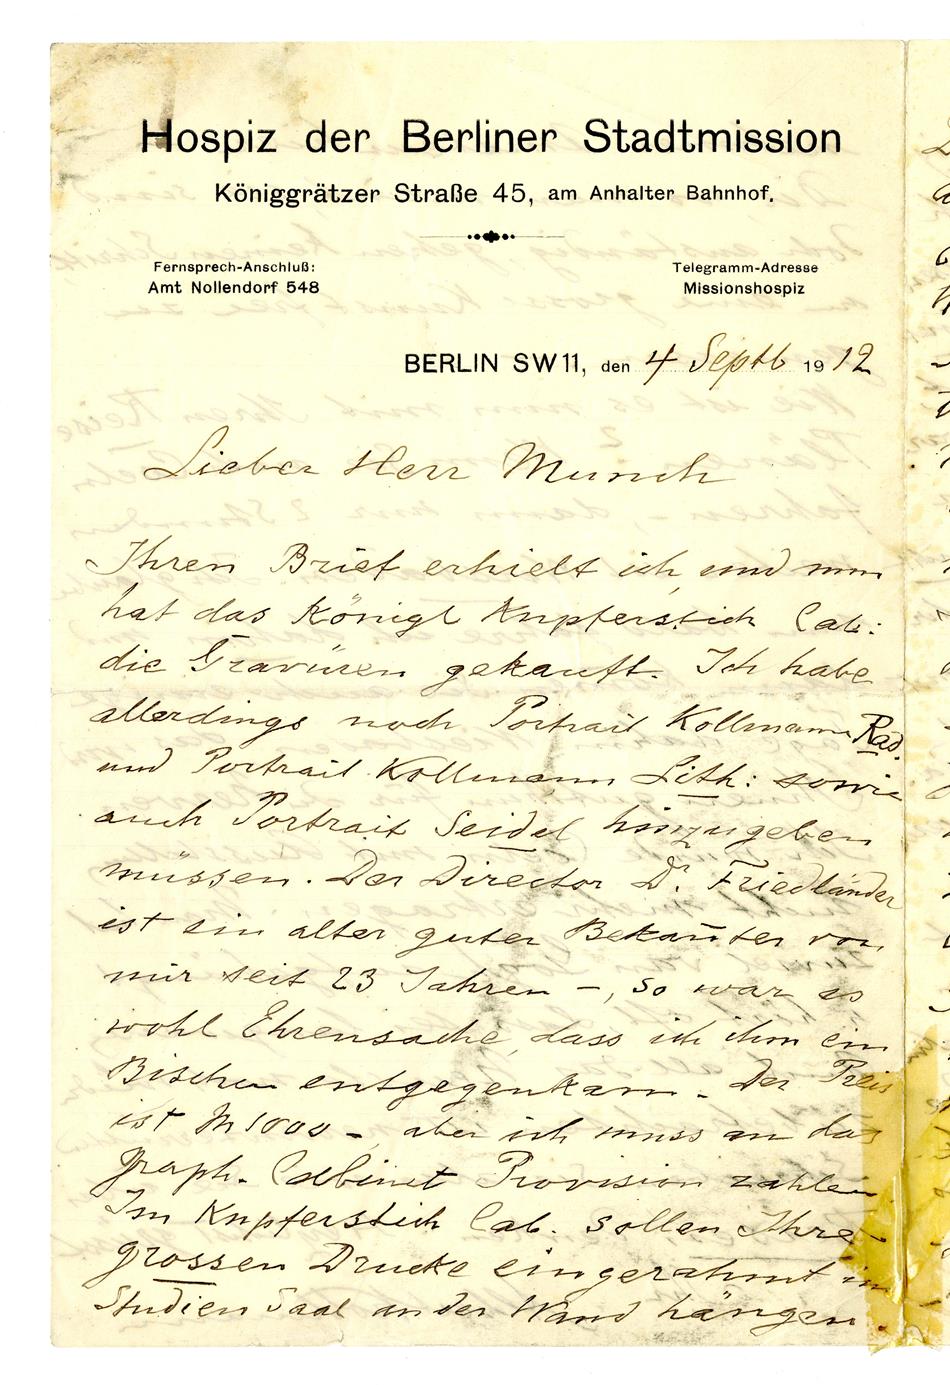 Hospiz der Berliner Stadtmission
Königgrätzer Straße 45, am Anhalter Bahnhof.
Fernsprech-Anschluß:
Amt Nollendorf 548
Telegramm-Adresse
Missionshospiz
BERLIN SW11, den 4 Septb 1912
Lieber Herr Munch
Ihren Brief erhielt ich, und nun
hat das Königl Kupferstich Cab:
die Gravüren gekauft. Ich habe
allerdings noch Portrait Kollmann Rad.
und Portrait Kollmann Lith: sowie
auch Portrait Seidel hinzugeben
müssen. Der Director Dr. Friedländer
ist ein alter guter Bekan̄ter von
mir seit 23 Jahren –, so war es
wohl Ehrensache, dass ich ihm ein
Bischen entgegenkam. Der Preis
ist M 1000 – aber ich muss an das
graph. Cabinet Provision zahlen
Im Kupferstich Cab. sollen Ihre
grossen Drucke eingerahmt im
Studien Saal an der Wand hängen.